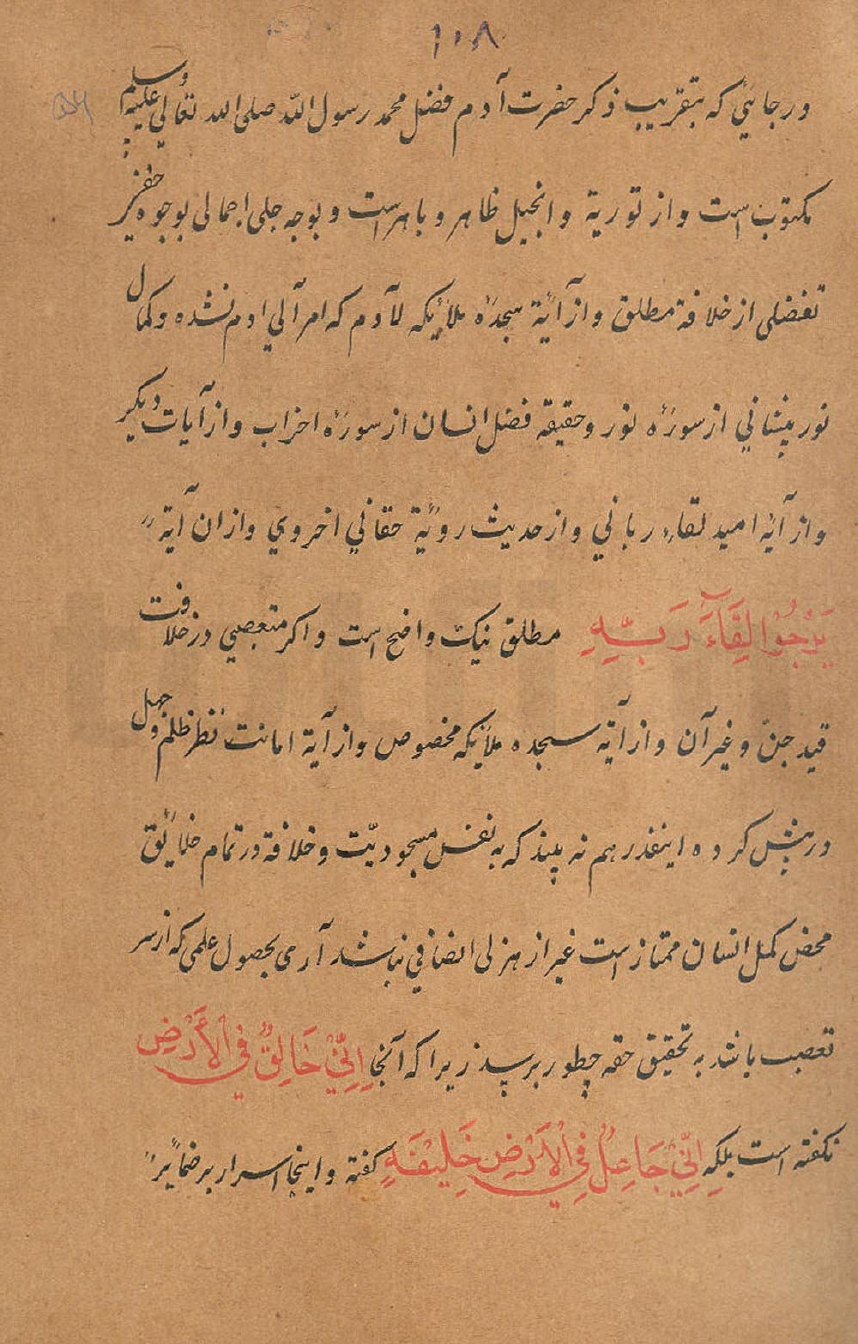 ۱۰۸
در جائیکه بتقریب ذکر حضرت آدم فضل محمد رسول الله صلی الله تعالی علیه وسلم
مکتوب است و از توریة و انجیل ظاهر و باهر است و بوجه جلی اجمالی بوجوه
تفضلی از خلافة مطلق و از آیة سجدهٔ ملائکه لآدم که امرآلی ادم نشده وکمال
نور پیشانی از سورهٔ نور و حقیقة فضل انسان از سورهٔ احزاب و از آیات دیگر
و از آیهٔ امید لقاء ربانی و از حدیث رویة حقانی اخروی و ازان آیة
یَرْجُوا لِقَآءَ رَبِّهِ مطلق نیک واضح است و اکر متعصبی در خلافت
قید جن و غیر آن و از آیة سجده ملائکه مخصوص و از آیة امانت نظر ظلم وجهل
در پیش کرده اینقدر هم نه بیند که به نفس مسجودیت و خلافة در تمام خلائق
محض کمل انسان ممتاز است غیر از هزلی انصافی نباشد آری بحصول علمی که از سر
تعصب باشد به تحقیق حقه چطور برسد زیرا که آنجا اِنِّیْ خَالِقٌ فِی الْأَرْضِ
نکفته است بلکه اِنِّیْ جَاعِلٌ فِی الْأَرْضِ خَلِیْفَهِ کفته و اینجا اسرار بر ضمائر